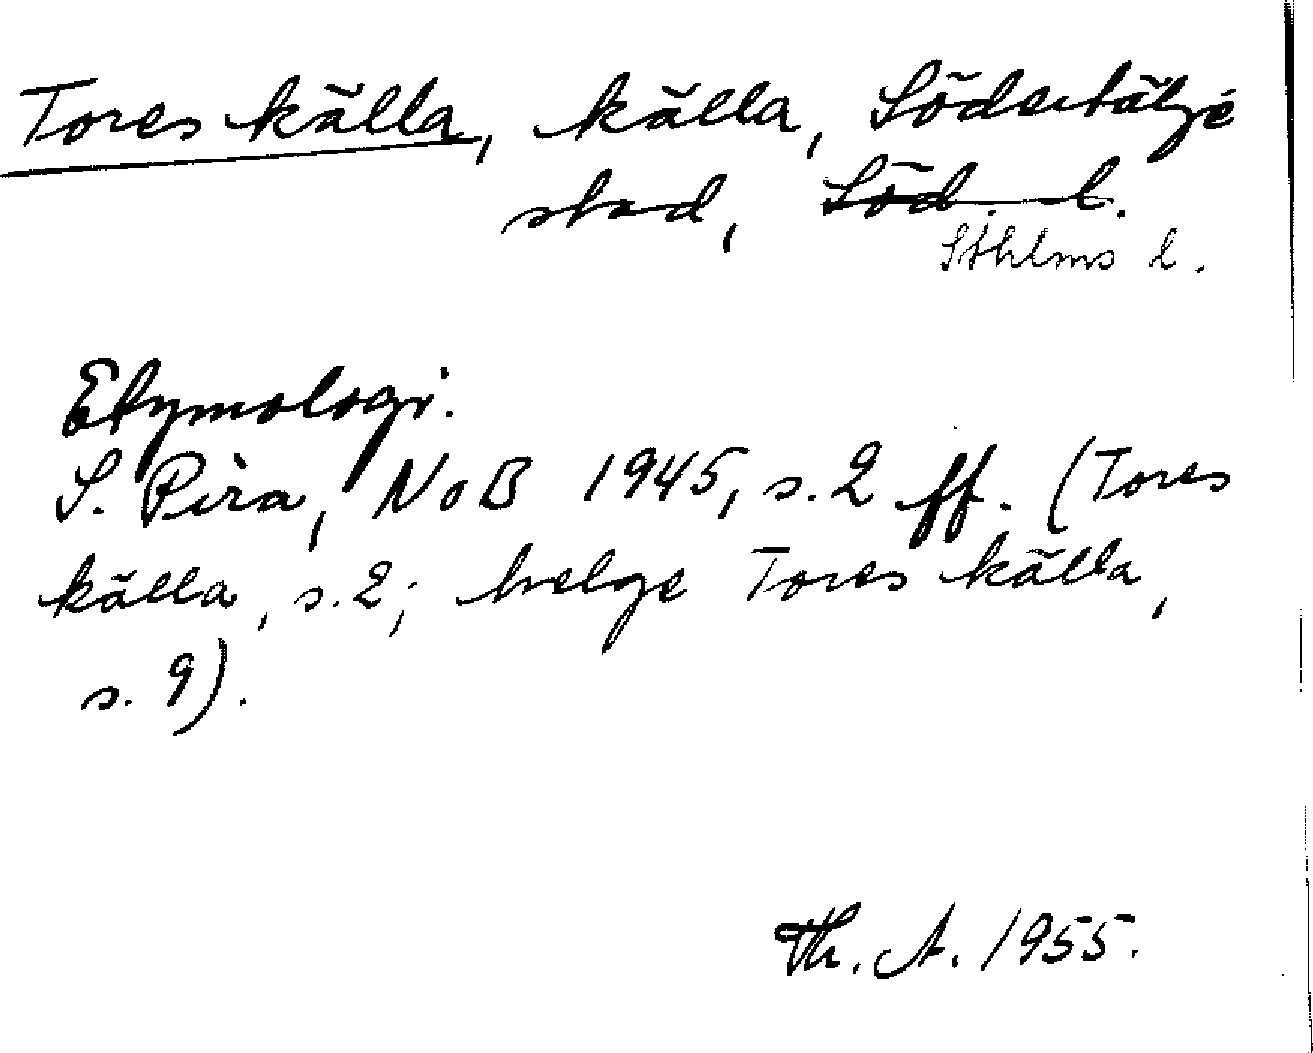 Tores källa, källa, Södertälje
stad, Söd. l.
Sthlms l.
Etymologi.
S. Pira, NoB 1945, s. 2 ff. (Tores
källa, s. 2; helge Tores källa,
s. 9).
Th. A. 1955.